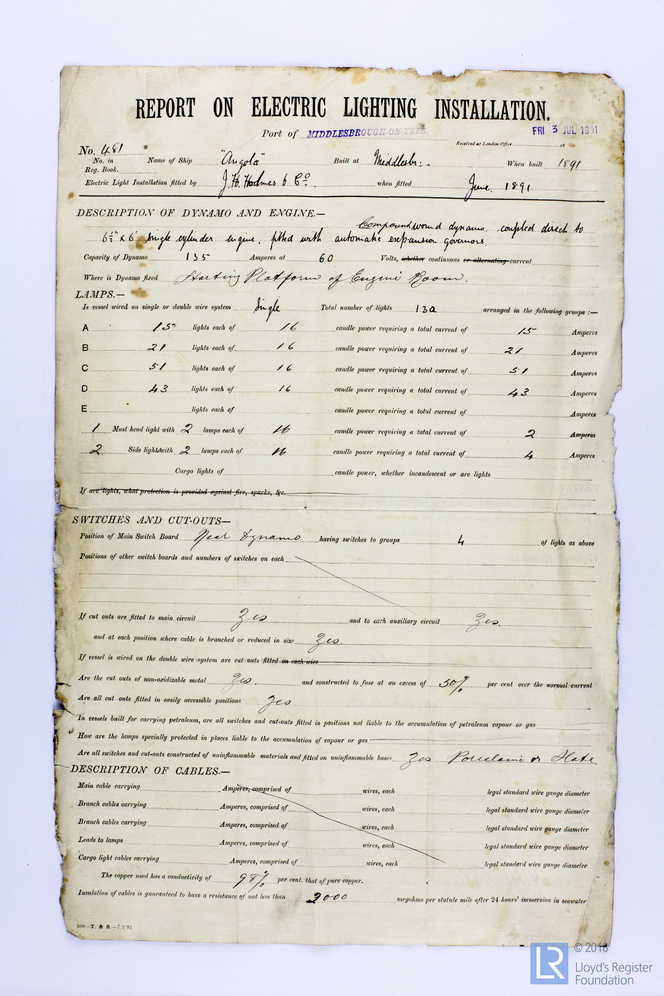 REPORT ON ELECTRIC LIGHTING INSTALLATION.
Port of MIDDLESBROUGH-ON-TEES. FRI 3 JUL 1891
Received at London Office
No. 481
No. in Reg. Book. Name of Ship "Angola" Built at Middlesbr: When built 1891
Electric Light Installation fitted by J. H. Holmes & Co. when fitted June. 1891
DESCRIPTION OF DYNAMO AND ENGINE.— Compound wound dynamo. coupled direct to
6½" x 6" single cylinder engine. fitted with automatic expansion governors.
Capacity of Dynamo 135 Amperes at 60 Volts, whether continuous or alternating current
Where is Dynamo fixed Starting Platform of Engine Room.
LAMPS.—
Is vessel wired on single or double wire system Single Total number of lights 130 arranged in the following groups :—
A 15 lights each of 16 candle power requiring a total current of 15 Amperes
B 21 lights each of 16 candle power requiring a total current of 21 Amperes
C 51 lights each of 16 candle power requiring a total current of 51 Amperes
D 43 lights each of 16 candle power requiring a total current of 43 Amperes
E lights each of candle power requiring a total current of Amperes
1 Mast head light with 2 lamps each of 16 candle power requiring a total current of 2 Amperes
2 Side light with 2 lamps each of 16 candle power requiring a total current of 4 Amperes
Cargo lights of candle power, whether incandescent or arc lights
If arc lights, what protection is provided against fire, sparks, &c.
SWITCHES AND CUT-OUTS—
Position of Main Switch Board Near Dynamo having switches to groups 4 of lights as above
Positions of other switch boards and numbers of switches on each
If cut outs are fitted to main circuit Yes and to each auxiliary circuit Yes.
and at each position where cable is branched or reduced in size Yes.
If vessel is wired on the double wire system are cut outs fitted on each wire
Are the cut outs of non-oxidizable metal Yes. and constructed to fuse at an excess of 50% per cent over the normal current
Are all cut outs fitted in easily accessible positions Yes
In vessels built for carrying petroleum, are all switches and cut-outs fitted in positions not liable to the accumulation of petroleum vapour or gas
How are the lamps specially protected in places liable to the accumulation of vapour or gas
Are all switches and cut-outs constructed of uninflammable materials and fitted on uninflammable bases Yes Porcelain or Slate
DESCRIPTION OF CABLES.—
Main cable carrying Amperes, comprised of wires, each legal standard wire gauge diameter
Branch cables carrying Amperes, comprised of wires, each legal standard wire gauge diameter
Branch cables carrying Amperes, comprised of wires, each legal standard wire gauge diameter
Leads to lamps Amperes, comprised of wires, each legal standard wire gauge diameter
Cargo light cables carrying Amperes, comprised of wires, each legal standard wire gauge diameter
The copper used has a conductivity of 98% per cent. that of pure copper.
Insulation of cables is guaranteed to have a resistance of not less than 2000 megohms per statute mile after 24 hours' immersion in seawater
300—T. & S.—7/2/91
LR © 2018
Lloyd's Register
Foundation